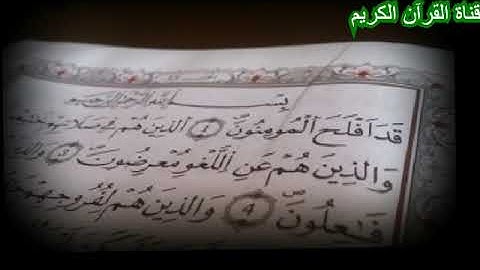 قناة القرآن الكريم
بِسْمِ اللهِ الرَّحْمٰنِ الرَّحِيمِ
قَدَ اَفْلَحَ الْمُومِنُونَ ١ الذِينَ هُمْ فِي صَلَاتِهِمْ
وَالذِينَ هُمْ عَنِ اللَّغْوِ مُعْرِضُونَ
فَاعِلُونَ ٤ وَالذِينَ هُمْ لِفُرُوجِهِمْ